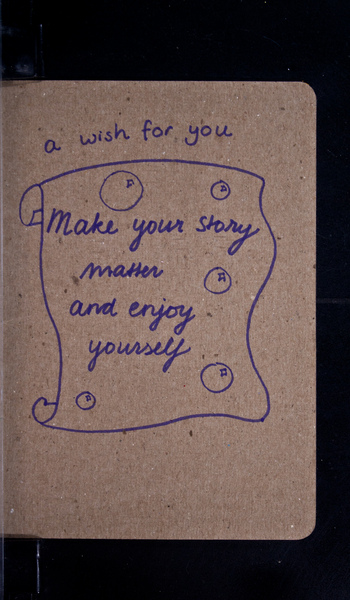 a wish for you
Make your story
matter
and enjoy
yourself